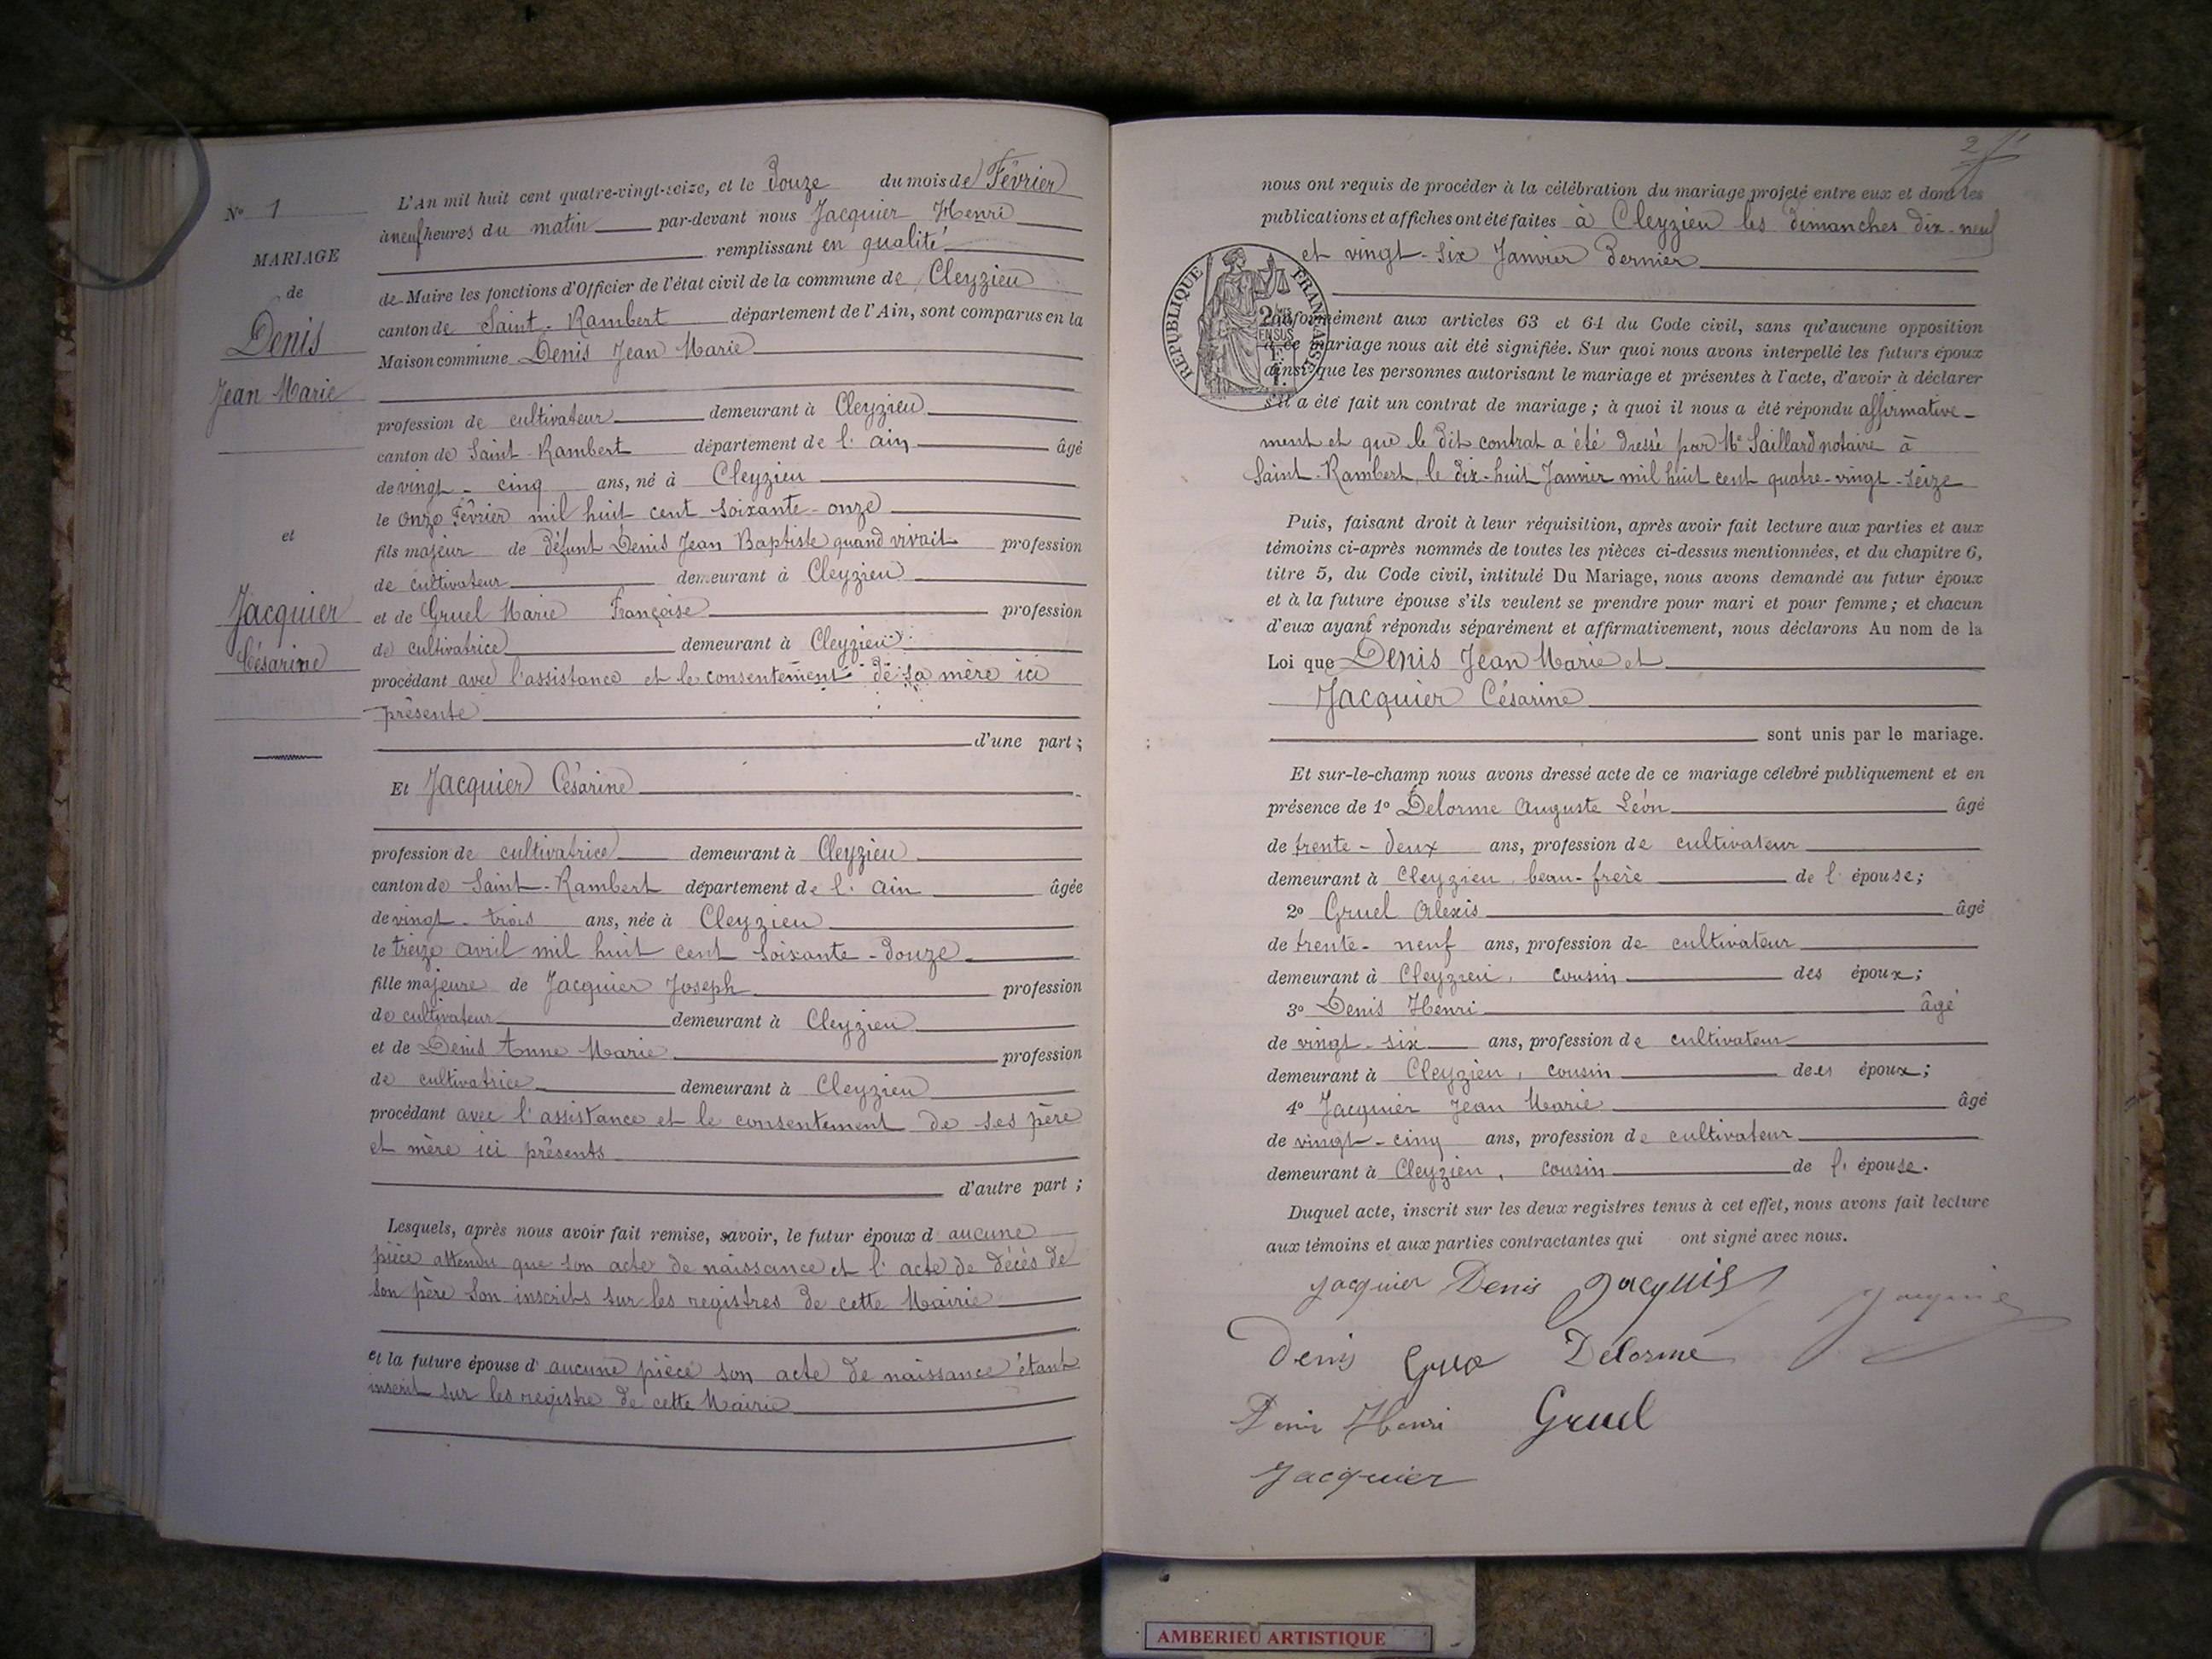 N° 1
MARIAGE
de
Denis
Jean Marie
et
Jacquier
Césarine
L'An mil huit cent quatre-vingt-seize, et le Douze du mois de Février
à neuf heures du matin par-devant nous Jacquier Henri
remplissant en qualité
de Maire les fonctions d'Officier de l'état civil de la commune de Cleyzieu
canton de Saint-Rambert département de l'Ain, sont comparus en la
Maison commune Denis Jean Marie
profession de cultivateur demeurant à Cleyzieu
canton de Saint-Rambert département de l'ain âgé
de vingt-cinq ans, né à Cleyzieu
le onze Février mil huit cent soixante-onze
fils majeur de défunt Denis Jean Baptiste quand vivait profession
de cultivateur demeurant à Cleyzieu
et de Gruel Marie Françoise profession
de cultivatrice demeurant à Cleyzieu
procédant avec l'assistance et le consentement de sa mère ici
présente
d'une part ;
Et Jacquier Césarine
profession de cultivatrice demeurant à Cleyzieu
canton de Saint-Rambert département de l'ain âgée
de vingt-trois ans, née à Cleyzieu
le treize avril mil huit cent soixante-douze
fille majeure de Jacquier Joseph profession
de cultivateur demeurant à Cleyzieu
et de Denis Anne Marie profession
de cultivatrice demeurant à Cleyzieu
procédant avec l'assistance et le consentement de ses père
et mère ici présents
d'autre part ;
Lesquels, après nous avoir fait remise, savoir, le futur époux d'aucune
pièce attendu que son acte de naissance et l'acte de décès de
son père son inscrits sur les registres de cette Mairie
et la future épouse d'aucune pièce son acte de naissance étant
inscrit sur les registre de cette Mairie
2
nous ont requis de procéder à la célébration du mariage projeté entre eux et dont les
publications et affiches ont été faites à Cleyzieu les dimanches dix-neuf
et vingt-six Janvier dernier
RÉPUBLIQUE FRANÇAISE
Conformément aux articles 63 et 64 du Code civil, sans qu'aucune opposition
à ce mariage nous ait été signifiée. Sur quoi nous avons interpellé les futurs époux
ainsi que les personnes autorisant le mariage et présentes à l'acte, d'avoir à déclarer
s'il a été fait un contrat de mariage ; à quoi il nous a été répondu affirmative-
ment et que le dit contrat a été dressé par Me Saillard notaire à
Saint-Rambert, le dix-huit Janvier mil huit cent quatre-vingt-seize
Puis, faisant droit à leur réquisition, après avoir fait lecture aux parties et aux
témoins ci-après nommés de toutes les pièces ci-dessus mentionnées, et du chapitre 6,
titre 5, du Code civil, intitulé Du Mariage, nous avons demandé au futur époux
et à la future épouse s'ils veulent se prendre pour mari et pour femme ; et chacun
d'eux ayant répondu séparément et affirmativement, nous déclarons Au nom de la
Loi que Denis Jean Marie et
Jacquier Césarine
sont unis par le mariage.
Et sur-le-champ nous avons dressé acte de ce mariage célébré publiquement et en
présence de 1° Delorme Auguste Léon âgé
de trente-deux ans, profession de cultivateur
demeurant à Cleyzieu, beau-frère de l'épouse ;
2° Gruel Alexis âgé
de trente-neuf ans, profession de cultivateur
demeurant à Cleyzieu, cousin des époux ;
3° Denis Henri âgé
de vingt-six ans, profession de cultivateur
demeurant à Cleyzieu, cousin des époux ;
4° Jacquier Jean Marie âgé
de vingt-cinq ans, profession de cultivateur
demeurant à Cleyzieu, cousin de l'épouse.
Duquel acte, inscrit sur les deux registres tenus à cet effet, nous avons fait lecture
aux témoins et aux parties contractantes qui ont signé avec nous.
Jacquier Denis Jacquier Jacquier
Denis Delorme
Denis Henri Gruel
Jacquier
AMBERIEU ARTISTIQUE